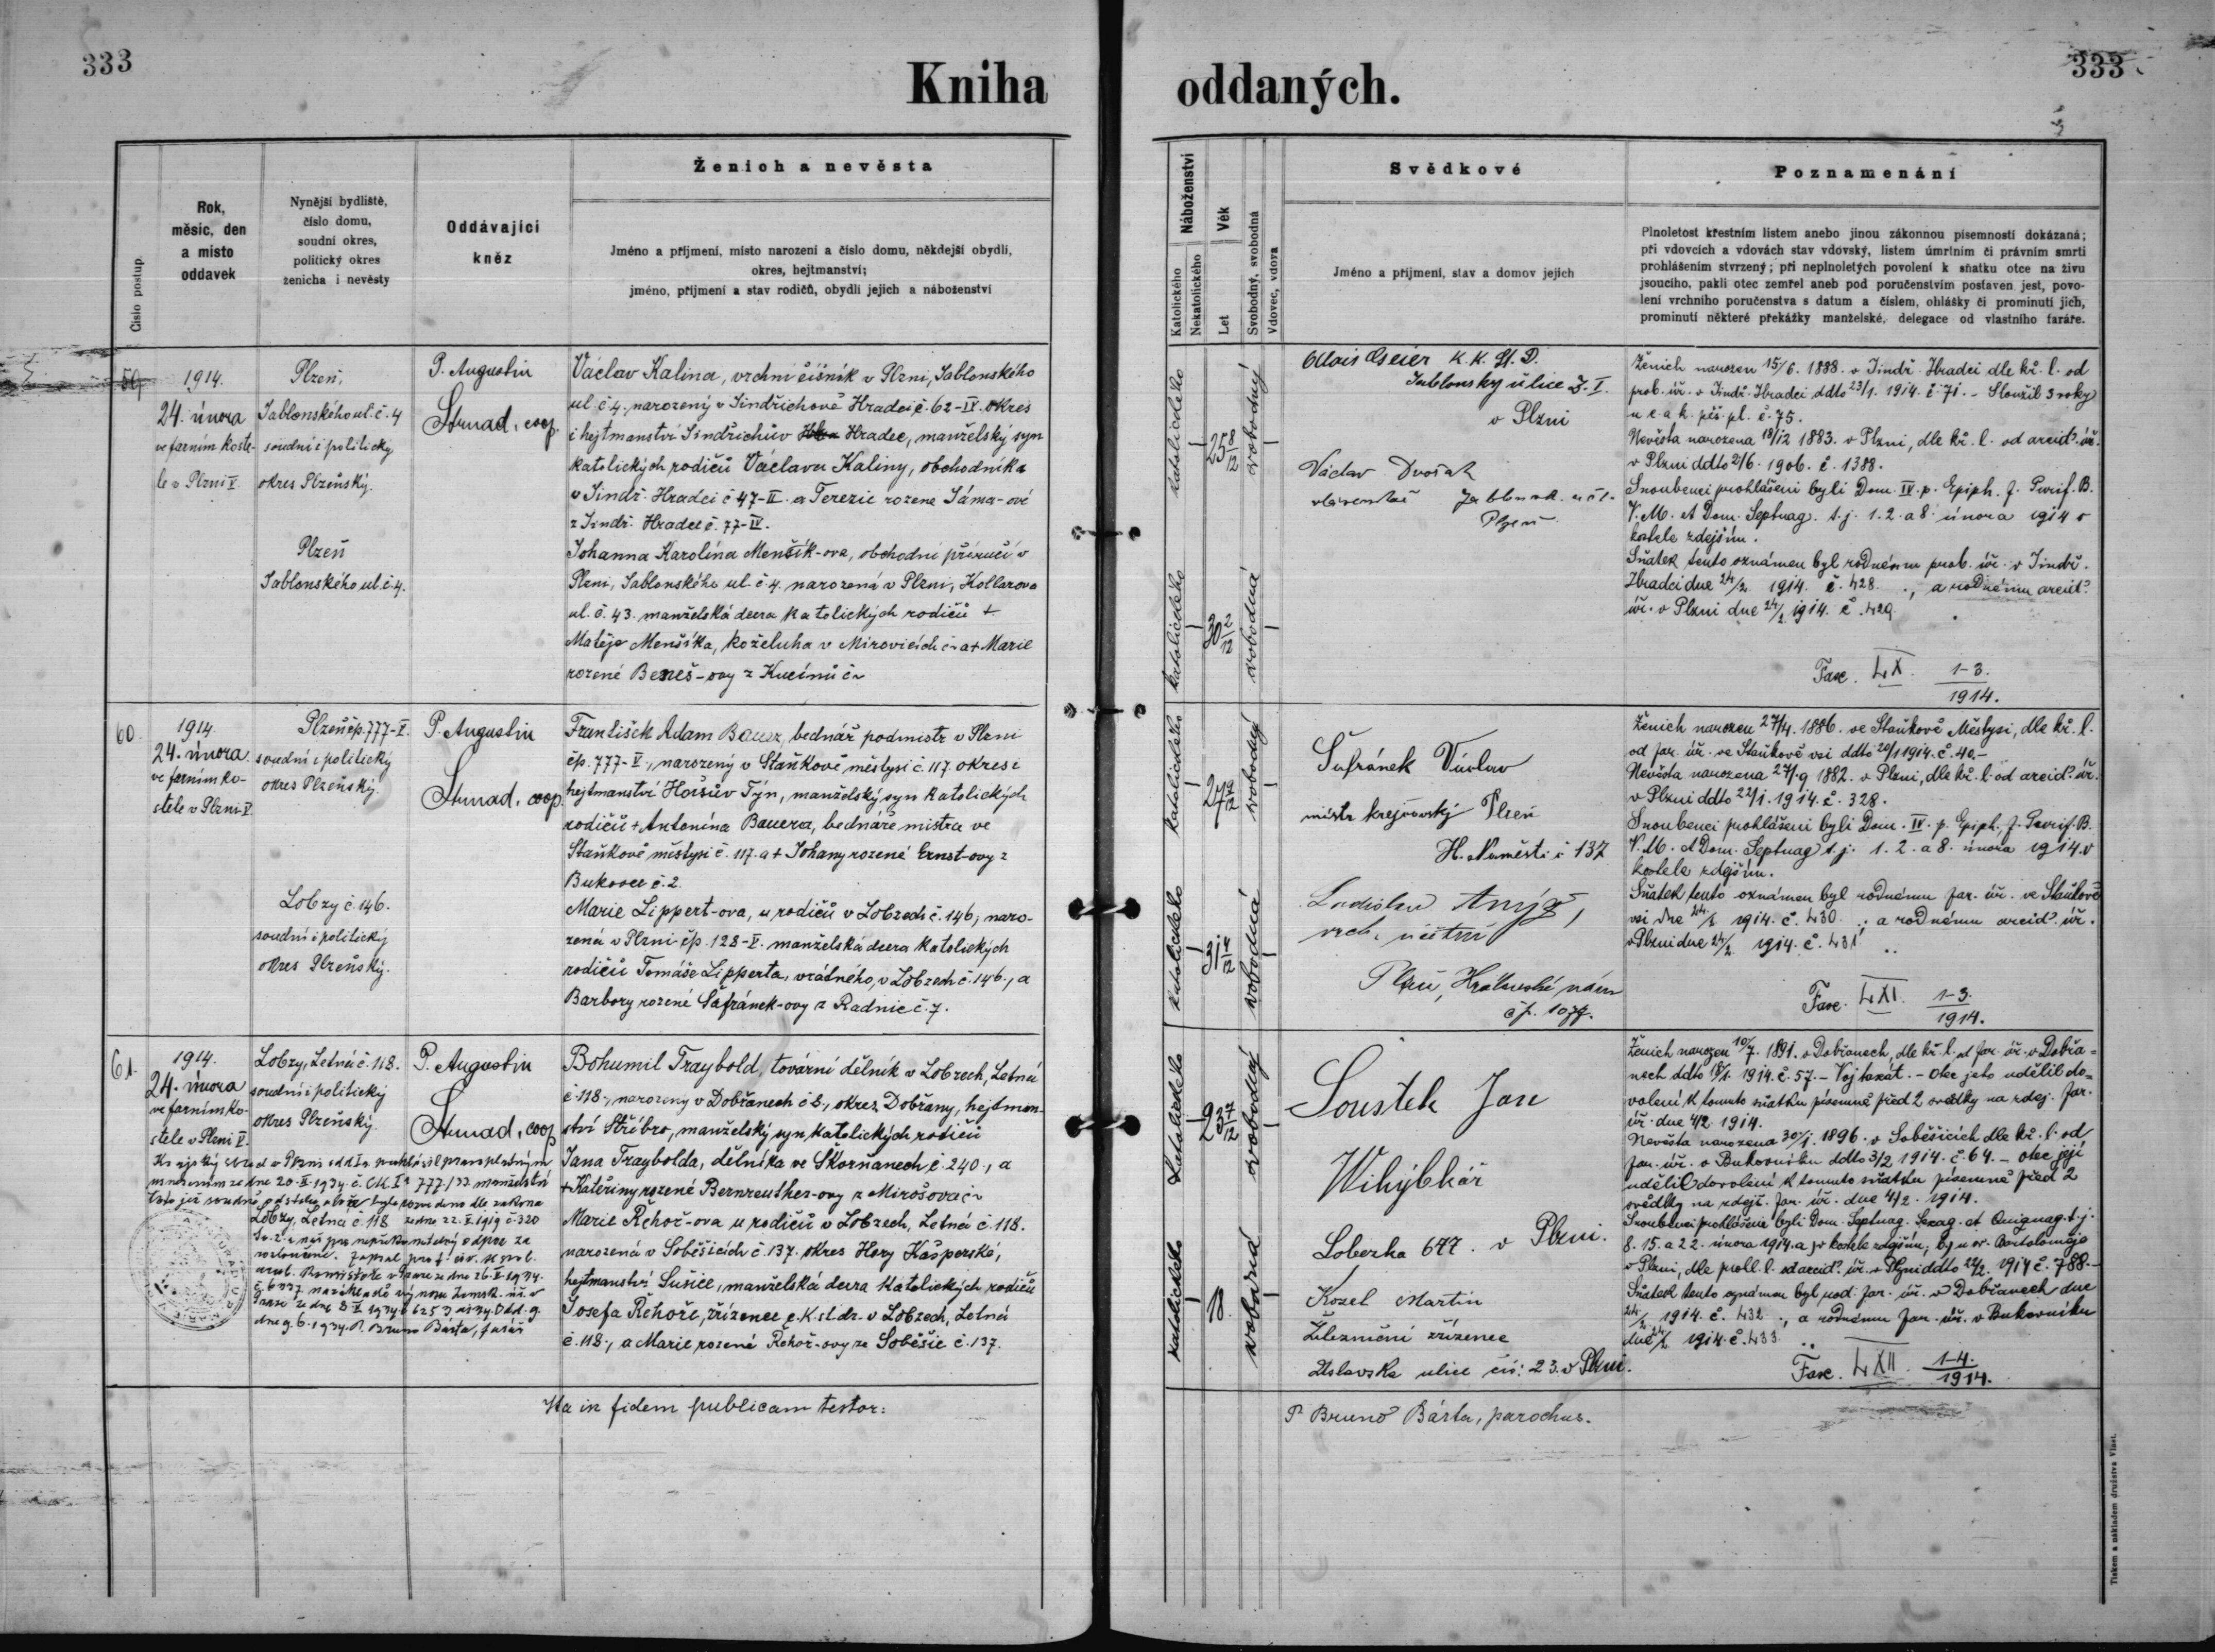 333
333
Kniha oddaných.
Číslo postup.
Rok,
měsíc, den
a místo
oddavek
Nynější bydliště,
číslo domu,
soudní okres,
politický okres
ženicha i nevěsty
Oddávající
kněz
Ženich a nevěsta
Jméno a příjmení, místo narození a číslo domu, někdejší obydlí,
okres, hejtmanství;
jméno, příjmení a stav rodičů, obydlí jejich a náboženství
Náboženství
Katolického
Nekatolického
Věk
Let
Svobodný, svobodná
Vdovec, vdova
Svědkové
Jméno a příjmení, stav a domov jejich
Poznamenání
Plnoletost křestním listem anebo jinou zákonnou písemností dokázaná;
při vdovcích a vdovách stav vdovský, listem úmrtním či právním smrti
prohlášením stvrzený; při neplnoletých povolení k sňatku otce na živu
jsoucího, pakli otec zemřel aneb pod poručenstvím postaven jest, povo-
lení vrchního poručenstva s datum a číslem, ohlášky či prominutí jich,
prominutí některé překážky manželské, delegace od vlastního faráře.
59
1914.
24. února
ve farním koste-
le v Plzni V.
Plzeň,
Jablonského ul. č. 4
soudní i politický
okres Plzeňský.
Plzeň
Jablonského ul. č. 4.
P. Augustin
Strnad, coop.
Václav Kalina, vrchní číšník v Plzni, Jablonského
ul č. 4, narozený v Jindřichově Hradci č. 62-IV. okres
i hejtmanství Jindřichův Hradec, manželský syn
katolických rodičů Václava Kaliny, obchodníka
v Jindř. Hradci č 47-II. a Terezie rozené Jáma-ové
z Jindř. Hradce č. 77-IV.
Johanna Karolína Menšík-ova, obchodní příručí v
Plzni, Jablonského ul. č 4. narozená v Plzni, Kollarova
ul. č. 43. manželská dcera katolických rodičů +
Matěje Menšíka, koželuha v Mirovicích č~ a + Marie
rozené Beneš-ovy z Kucínů č~
katolického
25 8/12
svobodný
katolického
30 2/12
svobodná
Alois Geier K. K. St. B.
Jablonsky ulice
v Plzni
Václav Dvořák
Plzeň
Ženich narozen 15/6. 1888. v Jindř. Hradci dle kř. l. od
prob. úř. v Jindř. Hradci ddto 23/1. 1914. č. 71. - Sloužil 3 roky
u c. a k. pěš. pl. č. 75.
Nevěsta narozena 18/12 1883. v Plzni, dle kř. l. od arcid. úř.
v Plzni ddto 21/6. 1906. č. 1388.
Snoubenci prohlášeni byli Dom. IV. p. Epiph. f. Purif. B.
V. M. et Dom. Septuag. t. j. 1. 2. a 8. února 1914 v
kostele zdejším.
Sňatek tento oznámen byl rodnému prob. úř. v Jindř.
Hradci dne 24/2. 1914. č. 428. , a rodnému arcid.
úř. v Plzni dne 24/2. 1914. č. 429.
Fasc. LX. 1-3. 1914.
60.
1914
24. února
ve farním ko-
stele v Plzni-V.
Plzeň čp. 777-V.
soudní i politický
okres Plzeňský.
Lobzy č. 146.
soudní i politický
okres Plzeňský.
P. Augustin
Strnad, coop.
František Adam Bauer, bednář podmistr v Plzni
čp. 777-V., narozený v Staňkově městysi č. 117 okres i
hejtmanství Horšův Týn, manželský syn katolických
rodičů + Antonína Bauera, bednáře mistra ve
Staňkově městysi č. 117. a + Johany rozené Ernst-ovy z
Bukovce č. 2.
Marie Lippert-ova, u rodičů v Lobzech č. 146, naro-
zená v Plzni čp. 128-V. manželská dcera katolických
rodičů Tomáše Lipperta, vrátného, v Lobzech č. 146., a
Barbory rozené Šafránek-ovy z Radnic č. 7.
katolického
27
svobodný
katolického
31 4/12
svobodná
Šafránek Václav
mistr krejčovský Plzeň
H. Náměstí č 137
Ladislav
vrch. účetní
Plzeň,
čp. 1079.
Ženich narozen 27/4. 1886. ve Staňkově Městysi, dle kř. l.
od far. úř. ve Staňkově vsi ddto 20/1 1914. č. 40.-
Nevěsta narozena 27/9 1882. v Plzni, dle kř. l. od arcid. úř.
v Plzni ddto 22/1. 1914. č. 328.
Snoubenci prohlášeni byli Dom. IV. p. Epiph. f. Purif. B.
V. M. et Dom. Septuag. t. j. 1. 2. a 8. února 1914. v
kostele zdejším.
Sňatek tento oznámen byl rodnému far. úř. ve Staňkově
vsi dne 24/2. 1914. č. 430. , a rodnému arcid. úř.
v Plzni dne 24/2. 1914. č. 431.
Fasc. LXI. 1-3. 1914.
61.
1914.
24. února
ve farním ko-
stele v Plzni V.
Lobzy, Letná č. 118.
soudní i politický
okres Plzeňský.
P. Augustin
Strnad, coop
Krajský soud v Plzni prohlásil pravoplatným
usnesením ze dne 20. 1934. č. Ck I a 777/33 manželství
Lobzy, Letná č. 118 ze dne 22. V. 1919 č. 320
rozloučené.
dne 9. 6. 1934. P. Bruno Bárta, farář
Bohumil Traybold, tovární dělník v Lobzech, Letná
č. 118., narozený v Dobřanech č 8., okres Dobřany, hejtman-
ství Stříbro, manželský syn katolických rodičů
Jana Traybolda, dělníka ve Skvrňanech č. 240., a
+ Kateřiny rozené Bernreuther-ovy z Mirošova č~
Marie Řehoř-ova u rodičů v Lobzech, Letná č. 118.
narozená v Soběšicích č. 137. okres Hory Kašperské,
hejtmanství Sušice, manželská dcera katolických rodičů
Josefa Řehoře, zřízence c. k. st. dr. v Lobzech, Letná
č. 118., a Marie rozené Řehoř-ovy ze Soběšic č. 137.
katolického
23 7/12
svobodný
katolického
18
svobodná
Soustek Jan
Wihýbkář
Lobezka 677. v Plzni.
Kozel Martin
Železniční zřízenec
ulice čís: 23. v Plzni.
Ženich narozen 10/7. 1891. v Dobřanech, dle kř. l. od far. úř. v Dobřa-
nech ddto 18/1. 1914. č. 57. - Voj. taxát. - Otec jeho udělil do-
volení k tomuto sňatku písemně před 2 svědky na zdej. far.
úř. dne 4/2. 1914.
Nevěsta narozena 30/1. 1896. v Soběšicích dle kř. l. od
far. úř. v Bukovníku ddto 3/2 1914. č. 64. - otec její
udělil dovolení k tomuto sňatku písemně před 2
svědky na zdejš. far. úř. dne 4/2. 1914.
Snoubenci prohlášeni byli Dom. Septuag. Sexag. et Quiquag. t. j.
8. 15. a 22. února 1914. a) v kostele zdejším, b) u sv. Bartoloměje
v Plzni, dle prohl. l. od arcid. úř. v Plzni ddto 22/2. 1914 č. 788.-
Sňatek tento oznámen byl rod. far. úř. v Dobřanech dne
24/2. 1914. č. 432. , a rodnému far. úř. v Bukovníku
dne 24/2. 1914. č. 433.
Fasc. LXII. 1-4. 1914.
Ita in fidem publicam testor:
P. Bruno Bárta, parochus.
Tiskem a nákladem družstva Vlast.